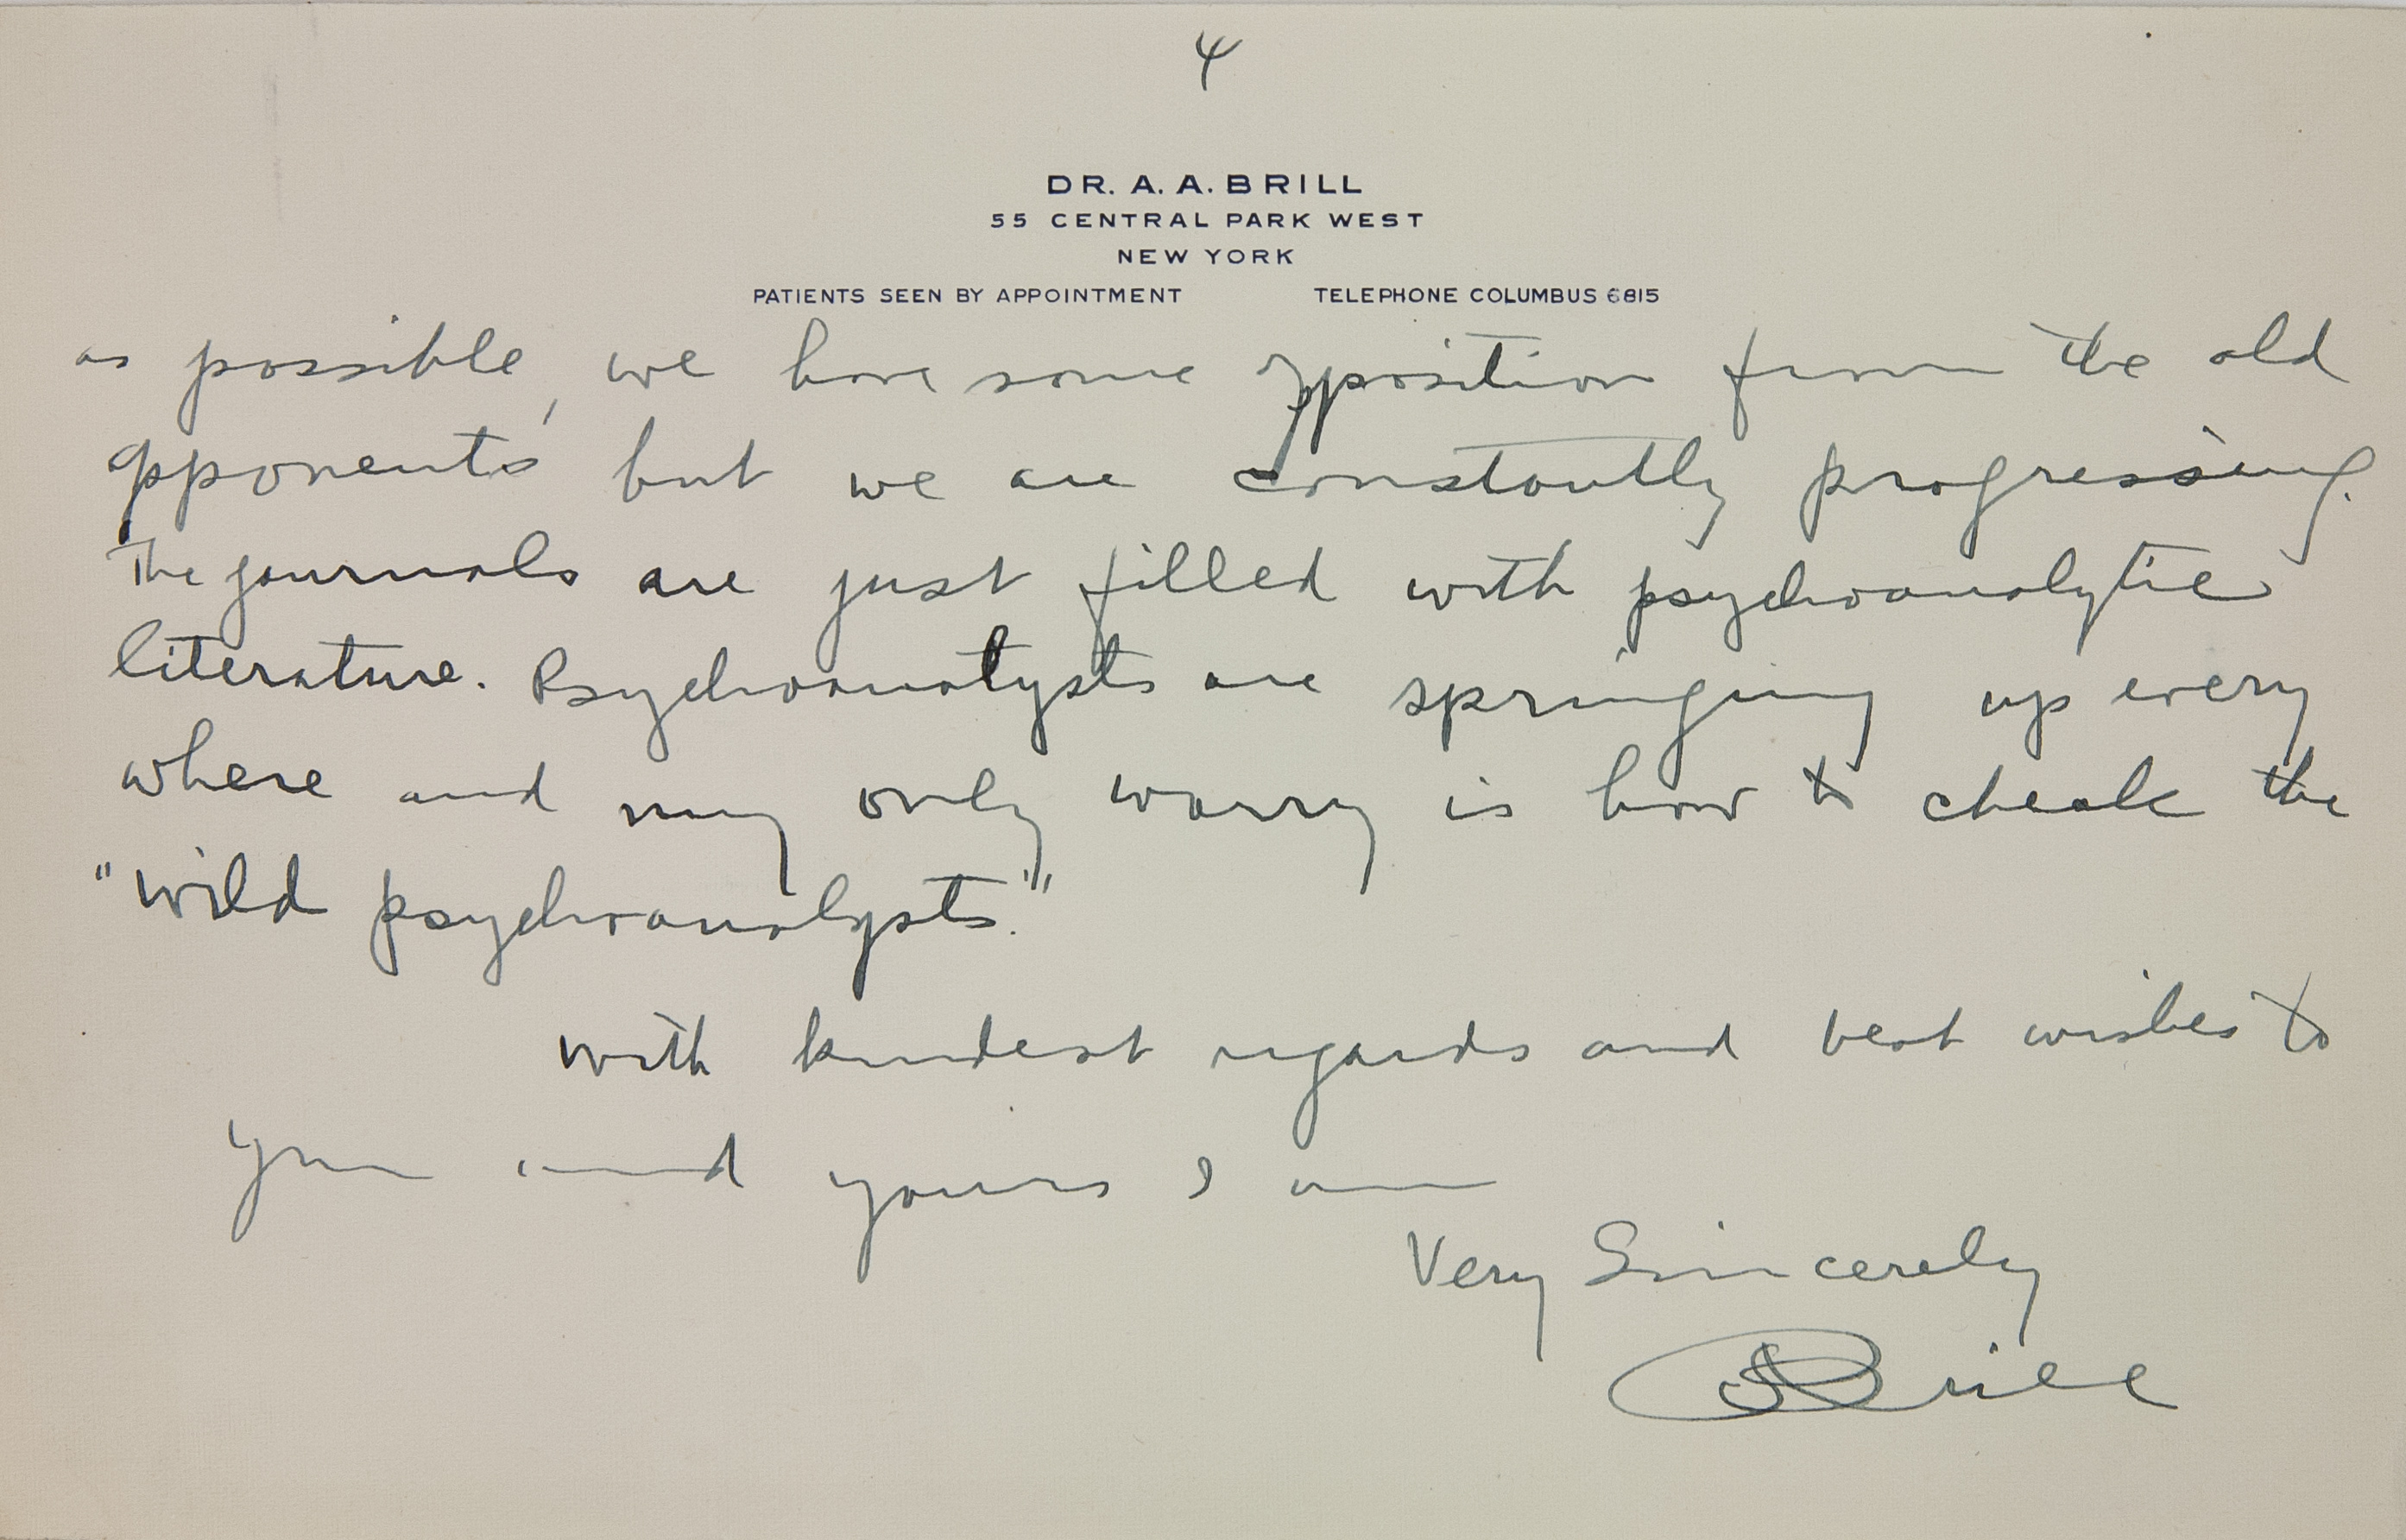 4
DR. A. A. BRILL
55 CENTRAL PARK WEST
NEW YORK
PATIENTS SEEN BY APPOINTMENT TELEPHONE COLUMBUS 6815
as possible, we have some opposition from the old
opponents but we are constantly progressing.
The journals are just filled with psychoanalytic
literature. Psychoanalysts are springing up every
where and my only worry is how to check the
"wild psychoanalysts."
with kindest regards and best wishes to
you and yours I am
Very Sincerely
Brill